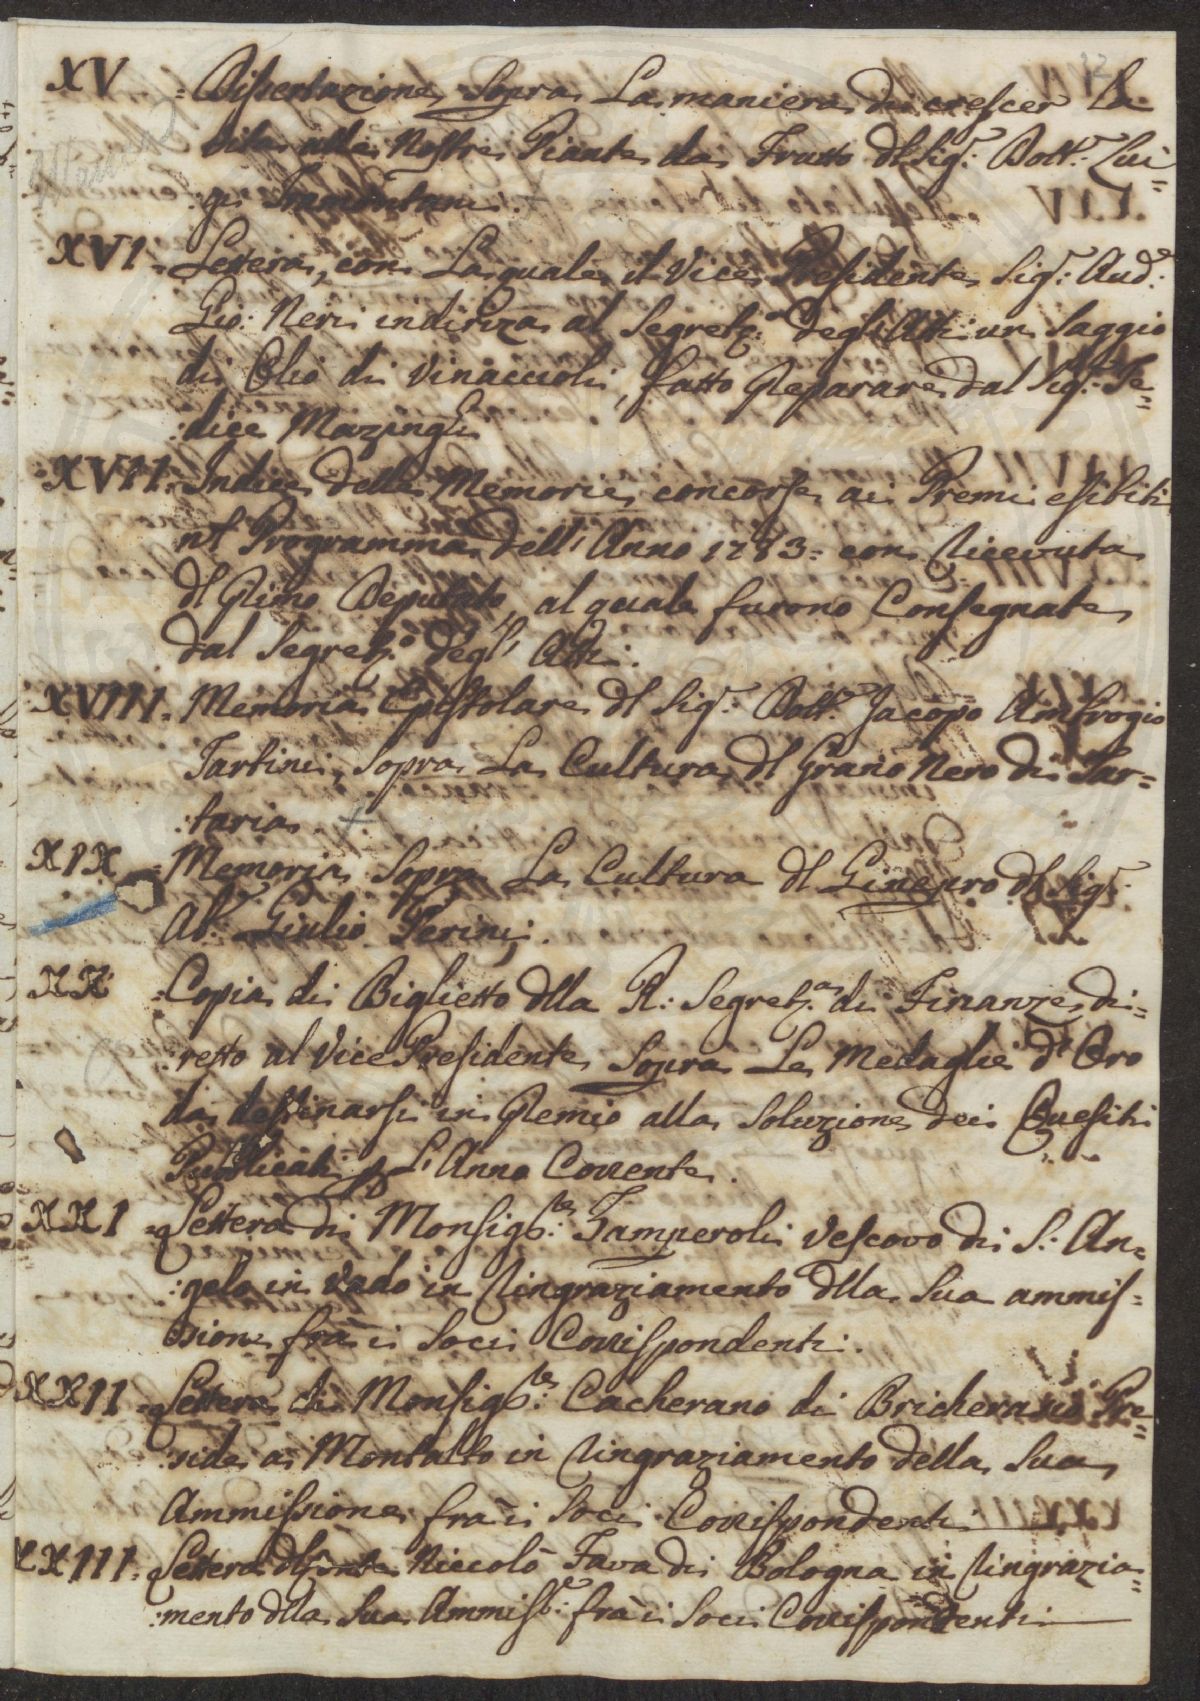 XV = Dissertazione Sopra La maniera di crescer la
vita alle Nostre Piante da Frutto dl Sig.r Dott.r Lui=
:gi Tramontani.
XVI = Lettera, con La quale il Vice Presidente Sig.r Aud.e
Gio: Neri indirizza al Segret.o degl'Atti un Saggio
di Olio di Vinaccioli, fatto Preparare dal Sig.r Fe=
:lice Mazzinghi
XVII = Indice delle Memorie concorse ai Premi esibiti
nl Programma dell'Anno 1783 = con Ricevuta
dl Primo Deputato, al quale furono Consegnate
dal Segret.o degl'Atti.
XVIII = Memoria Epistolare dl Sig.r Dott.r Jacopo Ambrogio
Tartini, Sopra La Cultura dl Grano Nero di Tar=
:taria.
XIX = Memoria Sopra La Cultura dl Ginepro dl Sig.r
Ab.e Giulio Perini.
XX = Copia di Biglietto dlla R: Segret.a di Finanze di=
:retto al Vice Presidente Sopra Le Medaglie d'Oro
da destinarsi in Premio alla Soluzione dei Quesiti
Pubblicati p L'Anno Corrente.
XXI = Lettera di Monsig.re Tamperoli Vescovo di S: An=
:gelo in Vado in Ringraziamento dlla Sua ammis=
sione frà i Soci Corrispondenti.
XXII = Lettera di Monsig.re Cacherano di Bricherasio Pre=
:side a Montalto in Ringraziamento della Sua
Ammissione frà i Soci Corrispondenti
XXIII = Lettera dl Conte Niccolò Fava di Bologna in Ringrazia=
:mento dlla Sua Ammiss.e frà i Soci Corrispondenti